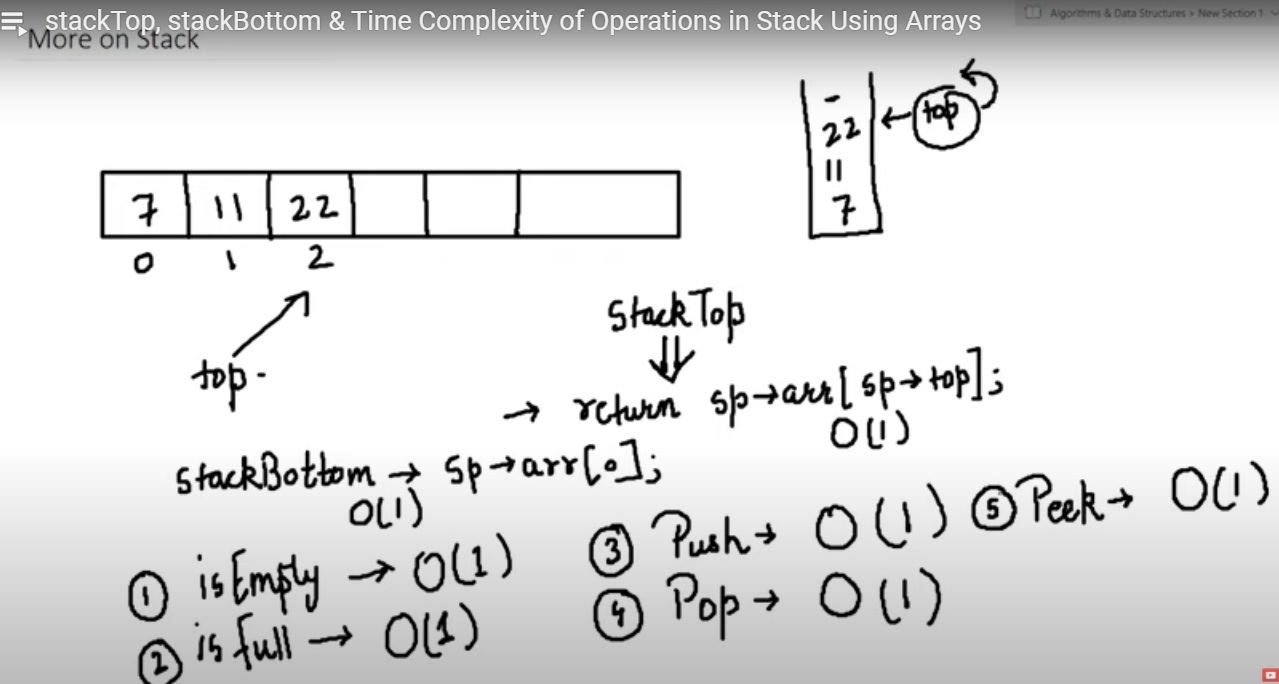 stackTop, stackBottom & Time Complexity of Operations in Stack Using Arrays
Algorithms & Data Structures > New Section 1
More on Stack
7 11 22
0 1 2
top
-
22
11
7
top
Stack Top
⇓
→ return sp→arr[sp→top];
O(1)
stackBottom → sp→arr[0];
O(1)
① isEmpty → O(1)
② isfull → O(1)
③ Push → O(1)
④ Pop → O(1)
⑤ Peek → O(1)